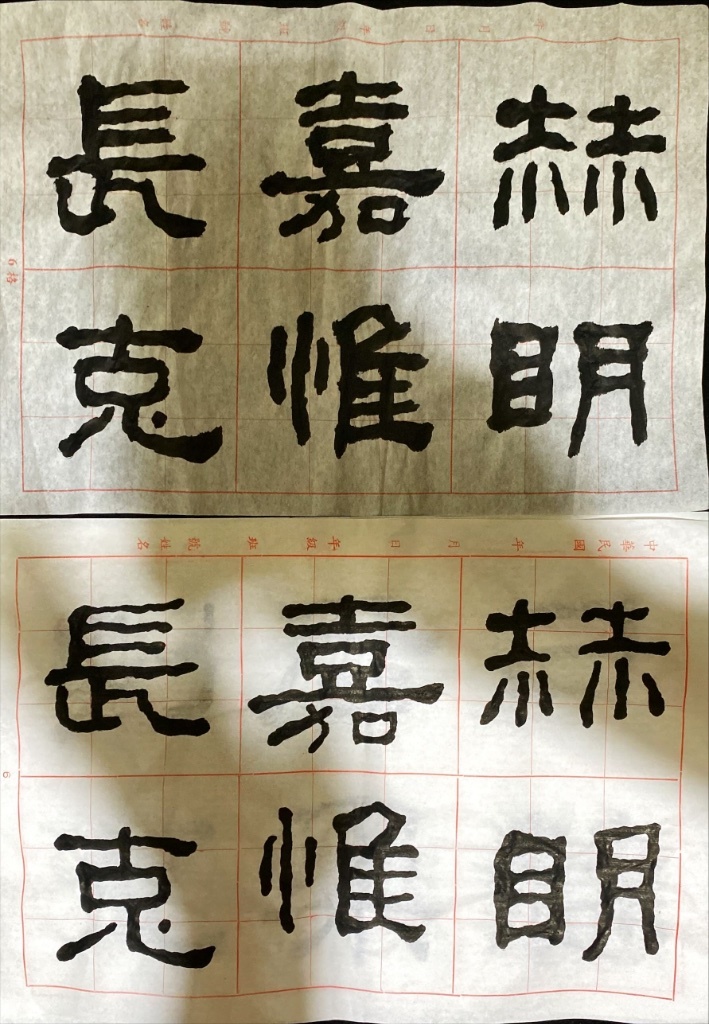 赫明
嘉惟
長克
6格
中華民國 年 月 日 年級 班 號 姓名
赫明
嘉惟
長克
6